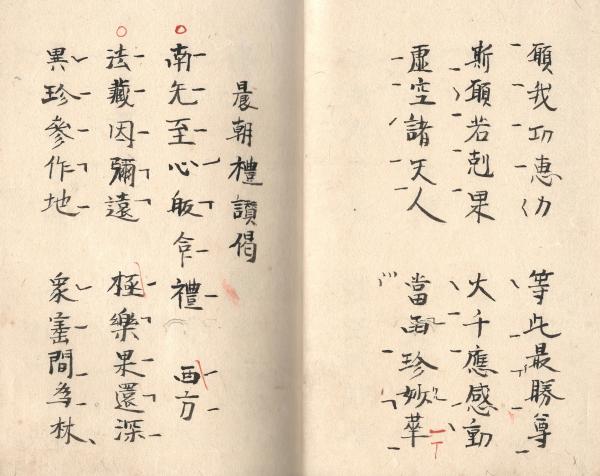 願我功恵力　等此最勝尊
斯願若剋果　大千應感動
虚空諸天人　當雨珍妙華
晨朝禮讃偈
南无至心皈命禮　西方
法藏因彌遠　極樂果還深
異珍參作地　衆寳間為林